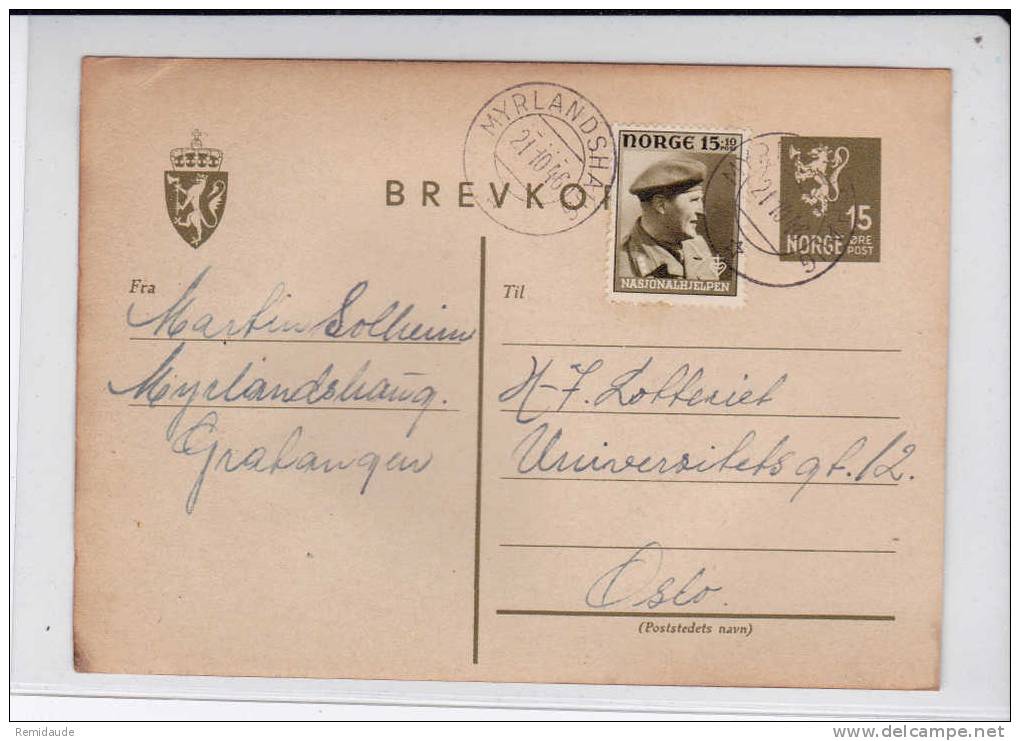 MYRLANDSHAUG
21.10.46
NORGE 15+10
NASJONALHJELPEN
15
ØRE
NORGE POST
BREVKOR
Fra
Martin Solheim
Myrlandshaug.
Gratangen
Til
H-7. Lotteriet
Universitets gt. 12.
Oslo.
(Poststedets navn)
Remidaude
delcampe.net